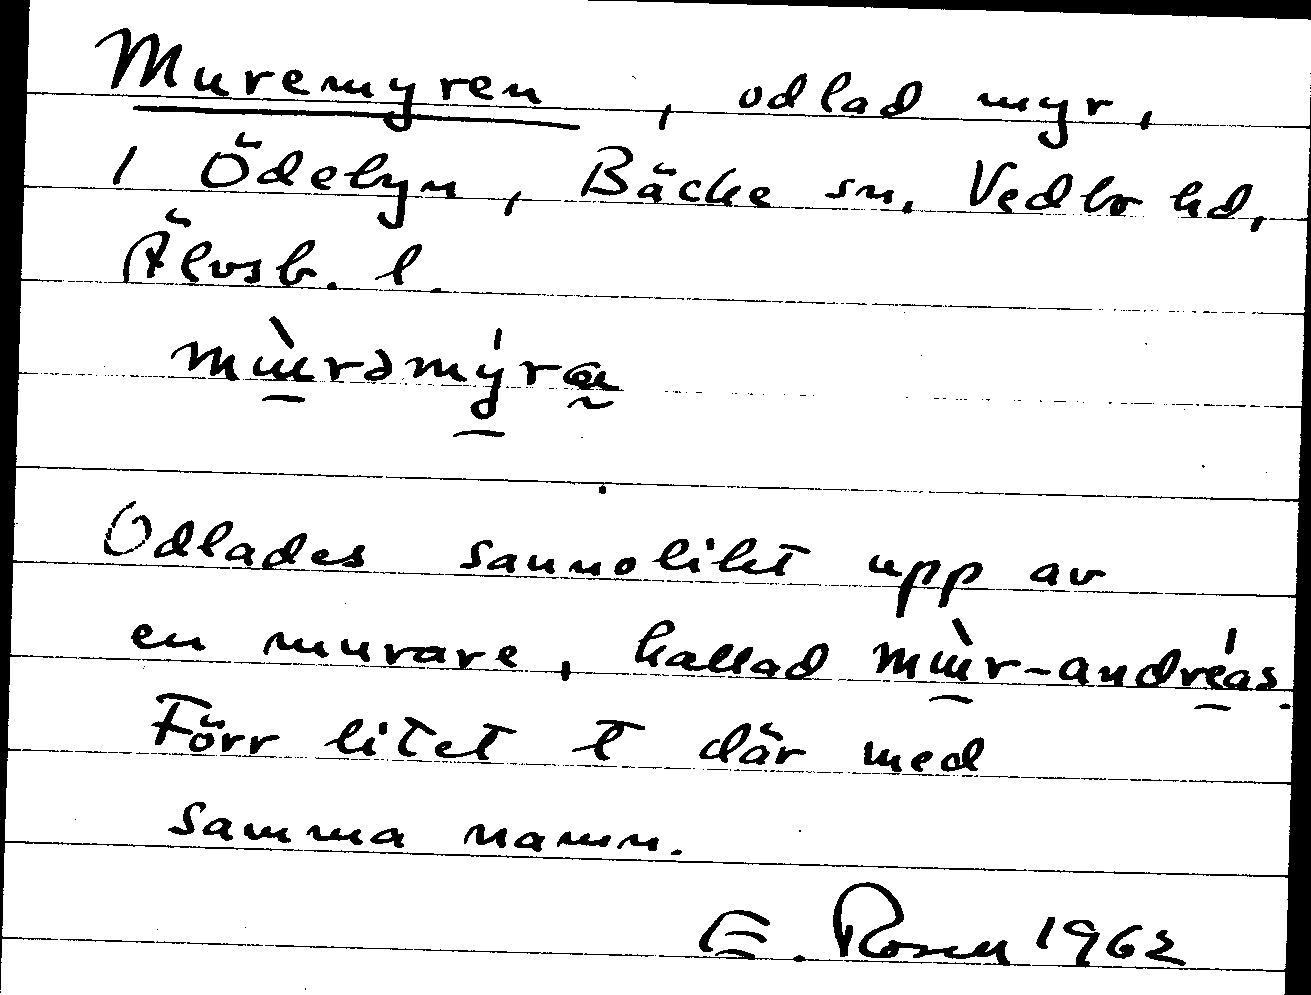 Muremyren, odlad myr,
I Ödebyn, Bäcke sn. Vedbo hd,
Älvsb. l.
mùrəmýra
Odlades sannolikt upp av
en murare, kallad mùr-andréas.
Förr litet t där med
samma namn.
E. Rosen 1962